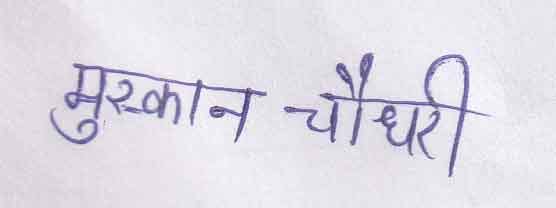 मुस्कान चौधरी